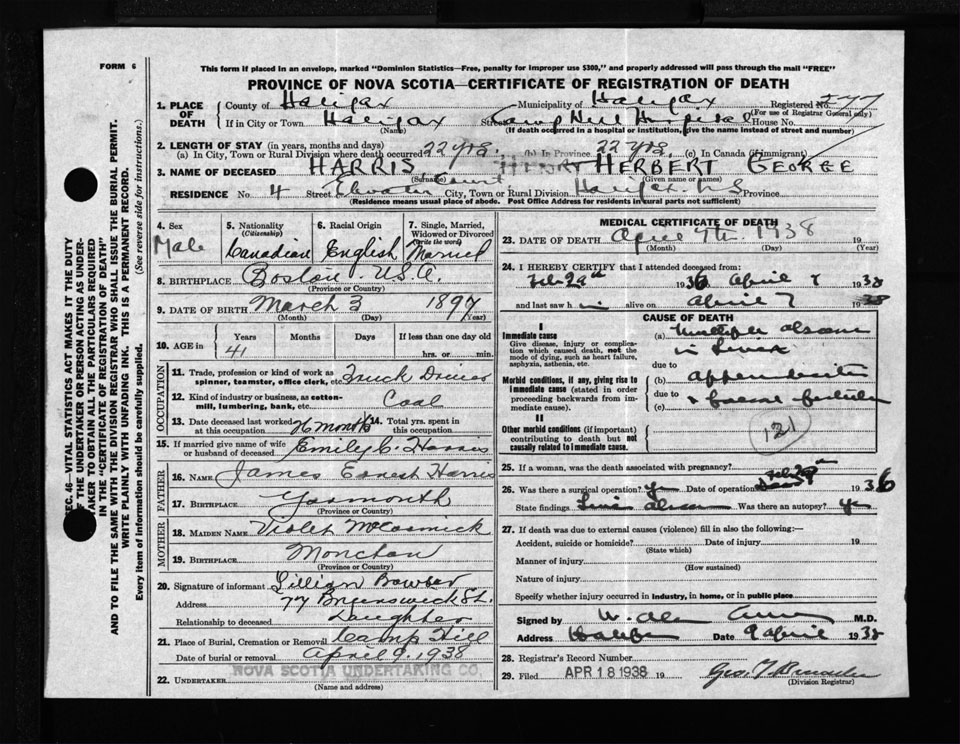 FORM 6
This form if placed in an envelope, marked "Dominion Statistics—Free, penalty for improper use $300," and properly addressed will pass through the mail "FREE"
PROVINCE OF NOVA SCOTIA—CERTIFICATE OF REGISTRATION OF DEATH
1. PLACE OF DEATH
County of Halifax Municipality of Halifax Registered No.
(For use of Registrar General only)
If in City or Town Halifax Street Camp Hill Hospital House No.
(Name) (If death occurred in a hospital or institution, give the name instead of street and number)
2. LENGTH OF STAY (in years, months and days)
(a) In City, Town or Rural Division where death occurred 22 yrs. (b) In Province 22 yrs. (c) In Canada (if immigrant)
3. NAME OF DECEASED HARRIS HENRY HERBERT GEORGE
(Surname) (Given or names)
RESIDENCE No. 4 Street Court City, Town or Rural Division Halifax. N S Province
(Residence means usual place of abode. Post Office Address for residents in rural parts not sufficient)
4. Sex Male
5. Nationality (Citizenship) Canadian
6. Racial Origin English
7. Single, Married, Widowed or Divorced (Write the word) Married
8. BIRTHPLACE Boston U.S.A.
(Province or Country)
9. DATE OF BIRTH March 3 1897
(Month) (Day) (Year)
10. AGE in Years Months Days If less than one day
41 hrs. or min.
OCCUPATION
11. Trade, profession or kind of work as spinner, teamster, office clerk, etc. Truck Driver
12. Kind of industry or business, as cotton-mill, lumbering, bank, etc. Coal
13. Date deceased last worked at this occupation months
14. Total yrs. spent in this occupation
15. If married give name of wife or husband of deceased Emily C. Harris
FATHER
16. NAME James Ernest Harris
17. BIRTHPLACE Yarmouth
(Province or Country)
MOTHER
18. MAIDEN NAME Violet McCormick
19. BIRTHPLACE Moncton
(Province or Country)
20. Signature of informant Lillian Bowser
Address 77 Brunswick St.
Relationship to deceased Daughter
21. Place of Burial, Cremation or Removal Camp Hill
Date of burial or removal April 9. 1938
22. UNDERTAKER NOVA SCOTIA UNDERTAKING CO.
(Name and address)
MEDICAL CERTIFICATE OF DEATH
23. DATE OF DEATH April 7th. 1938 19
(Month) (Day) (Year)
24. I HEREBY CERTIFY that I attended deceased from:
Feb 29th 1936 April 7 1938
and last saw him alive on April 7 1938
CAUSE OF DEATH
I
Immediate cause
Give disease, injury or complication which caused death, not the mode of dying, such as heart failure, asphyxia, asthenia, etc.
(a) Multiple abscess
in Liver
due to
Morbid conditions, if any, giving rise to immediate cause (stated in order proceeding backwards from immediate cause).
(b) Appendicitis
due to
(c) faecal fistula
II
Other morbid conditions (if important) contributing to death but not causally related to immediate cause.
121
25. If a woman, was the death associated with pregnancy?
26. Was there a surgical operation? yes Date of operation Feb 29th 1936
State findings Liver abscess Was there an autopsy? yes
27. If death was due to external causes (violence) fill in also the following:
Accident, suicide or homicide? Date of injury 19
(State which)
Manner of injury
(How sustained)
Nature of injury
Specify whether injury occurred in industry, in home, or in public place
Signed by M.D.
Address Halifax Date 9 April 1938
28. Registrar's Record Number
29. Filed APR 18 1938 19
(Division Registrar)
SEC. 46—VITAL STATISTICS ACT MAKES IT THE DUTY OF THE UNDERTAKER OR PERSON ACTING AS UNDERTAKER TO OBTAIN ALL THE PARTICULARS REQUIRED IN THE "CERTIFICATE OF REGISTRATION OF DEATH"
AND TO FILE THE SAME WITH THE DIVISION REGISTRAR WHO SHALL ISSUE THE BURIAL PERMIT.
WRITE PLAINLY WITH UNFADING INK. THIS IS A PERMANENT RECORD.
Every item of information should be carefully supplied. (See reverse side for instructions.)